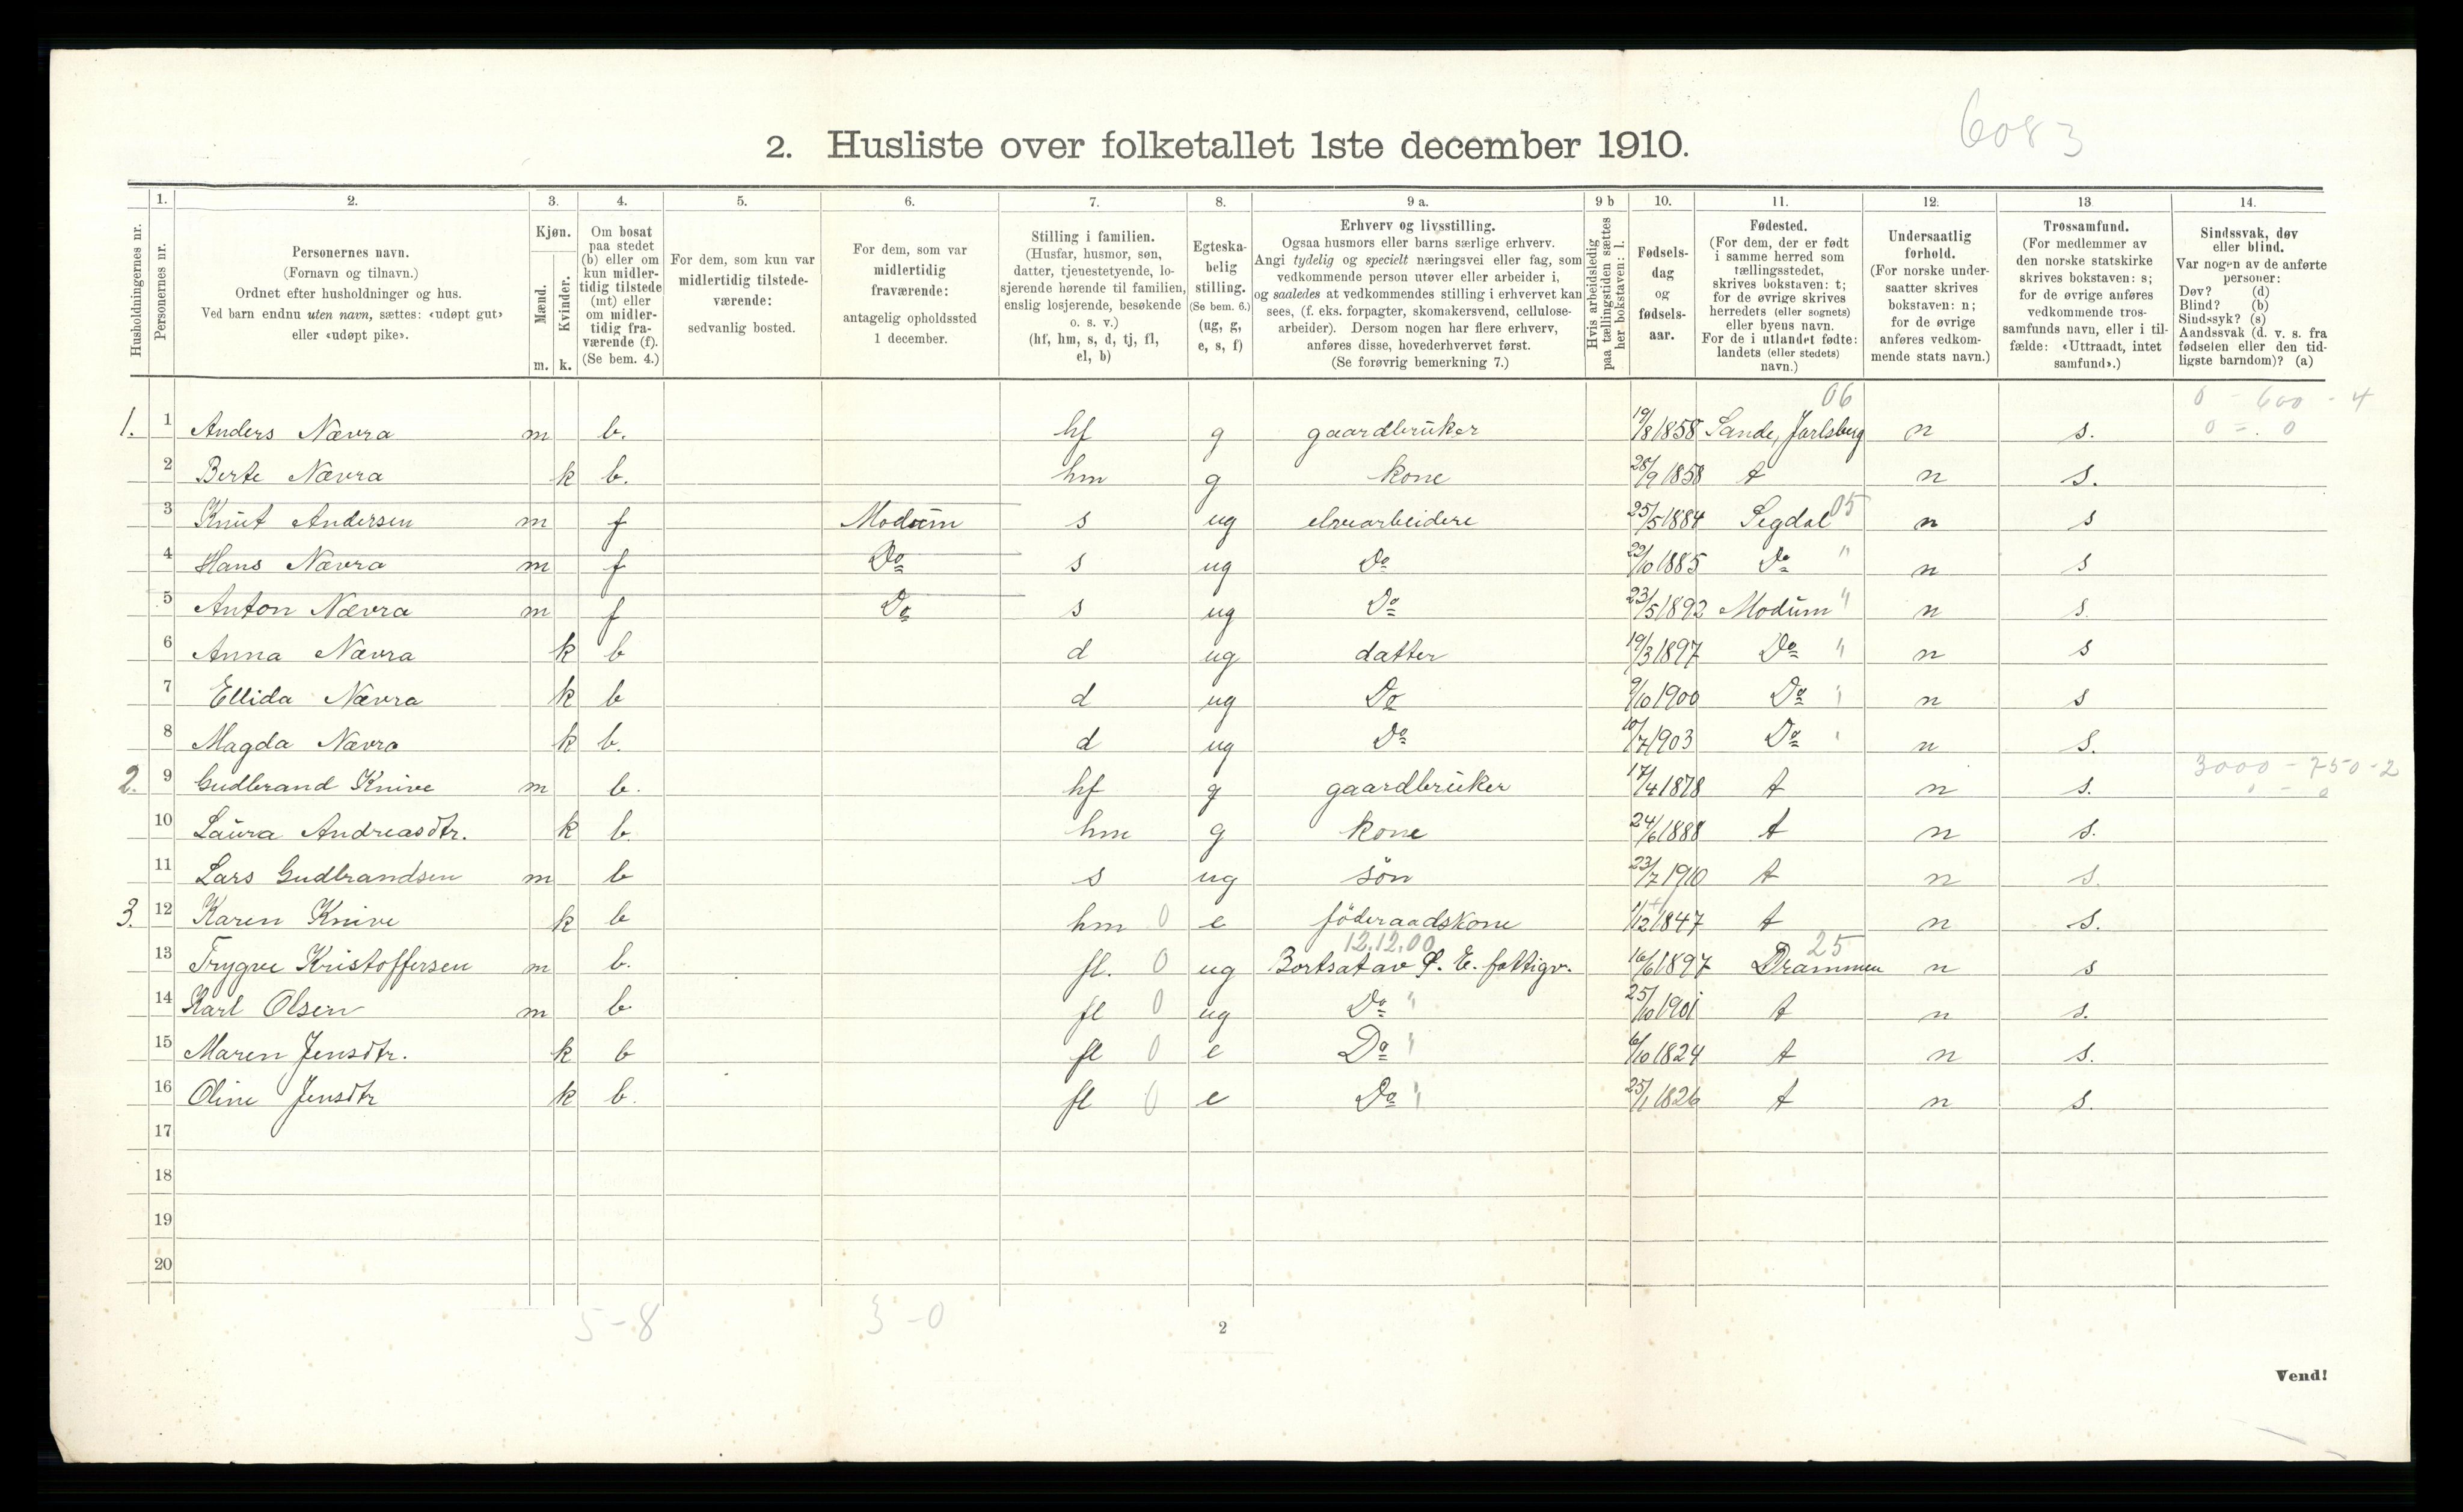 6083
2. Husliste over folketallet 1ste december 1910.
Husholdningernes nr.
1.
Personernes nr.
2.
Personernes navn.
(Fornavn og tilnavn.)
Ordnet efter husholdninger og hus.
Ved barn endnu uten navn, sættes: «udøpt gut»
eller «udøpt pike».
3.
Kjøn.
Mænd.
Kvinder.
m. k.
4.
Om bosat
paa stedet
(b) eller om
kun midler-
tidig tilstede
(mt) eller
om midler-
tidig fra-
værende (f).
(Se bem. 4.)
5.
For dem, som kun var
midlertidig tilstede-
værende:
sedvanlig bosted.
6.
For dem, som var
midlertidig
fraværende:
antagelig opholdssted
1 december.
7.
Stilling i familien.
(Husfar, husmor, søn,
datter, tjenestetyende, lo-
sjerende hørende til familien,
enslig losjerende, besøkende
o. s. v.)
(hf, hm, s, d, tj, fl,
el, b)
8.
Egteska-
belig
stilling.
(Se bem. 6.)
(ug, g,
e, s, f)
9 a.
Erhverv og livsstilling.
Ogsaa husmors eller barns særlige erhverv.
Angi tydelig og specielt næringsvei eller fag, som
vedkommende person utøver eller arbeider i,
og saaledes at vedkommendes stilling i erhvervet kan
sees, (f. eks. forpagter, skomakersvend, cellulose-
arbeider). Dersom nogen har flere erhverv,
anføres disse, hovederhvervet først.
(Se forøvrig bemerkning 7.)
9 b
Hvis arbeidsledig
paa tællingstiden sættes
her bokstaven: l.
10.
Fødsels-
dag
og
fødsels-
aar.
11.
Fødested.
(For dem, der er født
i samme herred som
tællingsstedet,
skrives bokstaven: t;
for de øvrige skrives
herredets (eller sognets)
eller byens navn.
For de i utlandet fødte:
landets (eller stedets)
navn.)
12.
Undersaatlig
forhold.
(For norske under-
saatter skrives
bokstaven: n;
for de øvrige
anføres vedkom-
mende stats navn.)
13
Trossamfund.
(For medlemmer av
den norske statskirke
skrives bokstaven: s;
for de øvrige anføres
vedkommende tros-
samfunds navn, eller i til-
fælde: «Uttraadt, intet
samfund».)
14.
Sindssvak, døv
eller blind.
Var nogen av de anførte
personer:
Døv? (d)
Blind? (b)
Sindssyk? (s)
Aandssvak (d. v. s. fra
fødselen eller den tid-
ligste barndom)? (a)
06 0 - 600 - 4
1. 1 Anders Nævra m b. hf g gaardbruker 19/8 1858 Sande, Jarlsberg n s. 0 - 0
2 Berte Nævra k b. hm g kone 28/9 1858 t n s.
3 Knut Andersen m f Modum s ug elvearbeidere 25/5 1884 Segdal 05 n s
4 Hans Nævra m f Do s ug Do 22/10 1885 Do " n s
5 Anton Nævra m f Do s ug Do 23/5 1892 Modum " n s.
6 Anna Nævra k b d ug datter 19/3 1897 Do " n s
7 Ellida Nævra k b d ug Do 9/10 1900 Do " n s
8 Magda Nævra k b. d ug Do 10/7 1903 Do " n s.
3000 - 750 - 2
2. 9 Gudbrand Knive m b. hf g gaardbruker 17/4 1878 t n s.
10 Laura Andreasdtr. k b. hm g kone 24/6 1888 t n s.
11 Lars Gudbrandsen m b s ug søn 23/7 1910 t n s.
3. 12 Karen Knive k b hm 0 e föderaadskone 1/12 1847 t n s.
12.12.00 25
13 Trygve Kristoffersen m b. fl. 0 ug Bortsat av D. E. fattigv. 16/6 1897 Drammen n s
14 Karl Olsen m b fl 0 ug Do " 25/10 1901 t n s.
15 Maren Jensdtr. k b fl 0 e Do " 6/10 1824 t n s.
16 Oline Jensdtr k b. fl 0 e Do " 25/1 1826 t n s.
17
18
19
20
5-8 3-0
2
Vend!